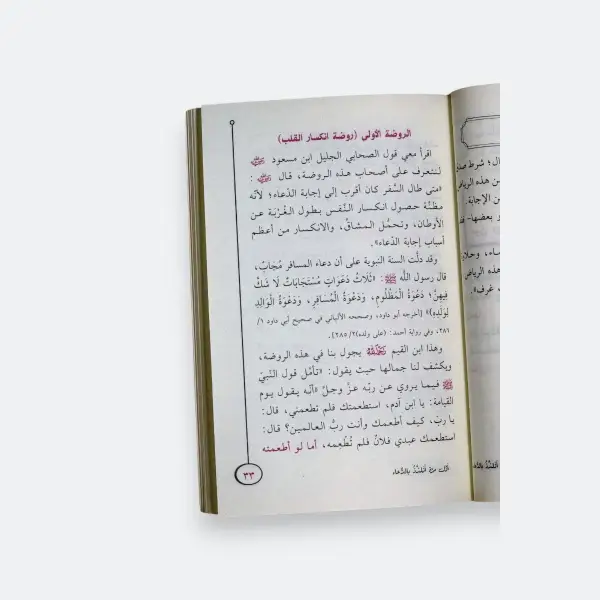 الروضة الأولى (روضة انكسار القلب)
اقرأ معي قول الصحابي الجليل ابن مسعود رضي الله عنه
لنتعرف على أصحاب هذه الروضة، قال رضي الله عنه :
«متى طال السَّفر كان أقرب إلى إجابة الدّعاء؛ لأنّه
مظنّة حصول انكسار النّفس بطول الغُربَة عن
الأوطان، وتحمُّل المشاقّ، والانكسار من أعظم
أسباب إجابة الدّعاء».
وقد دلّت السنة النبوية على أن دعاء المسافر مُجَابٌ،
قال رسول اللَّه ﷺ: «ثَلَاثُ دَعَوَاتٍ مُسْتَجَابَاتٌ لَا شَكَّ
فِيهِنَّ؛ دَعْوَةُ الْمَظْلُومِ، وَدَعْوَةُ الْمُسَافِرِ، وَدَعْوَةُ الْوَالِدِ
لِوَلَدِهِ»» [أخرجه أبو داود، وصححه الألباني في صحيح أبي داود ١/
٢٨٦، وفي رواية أحمد: (على ولده)٢/ ٢٨٥].
وهذا ابن القيم رحمه الله يجول بنا في هذه الروضة،
ويكشف لنا جمالها حيث يقول: «تأمّل قول النّبيّ
ﷺ فيما يروي عن ربّه عزّ وجلّ «أنّه يقول يوم
القيامة: يا ابن آدم، استطعمتك فلم تطعمني، قال:
يا ربّ، كيف أطعمك وأنت ربُّ العالمين؟ قال:
استطعمك عبدي فلانٌ فلم تُطْعِمه، أما لو أطعمته
٣٣
ال؛ شرط
ن هذه الرياض
ن الإجابة.
و بعضها-
هذه الرياض
غرف».